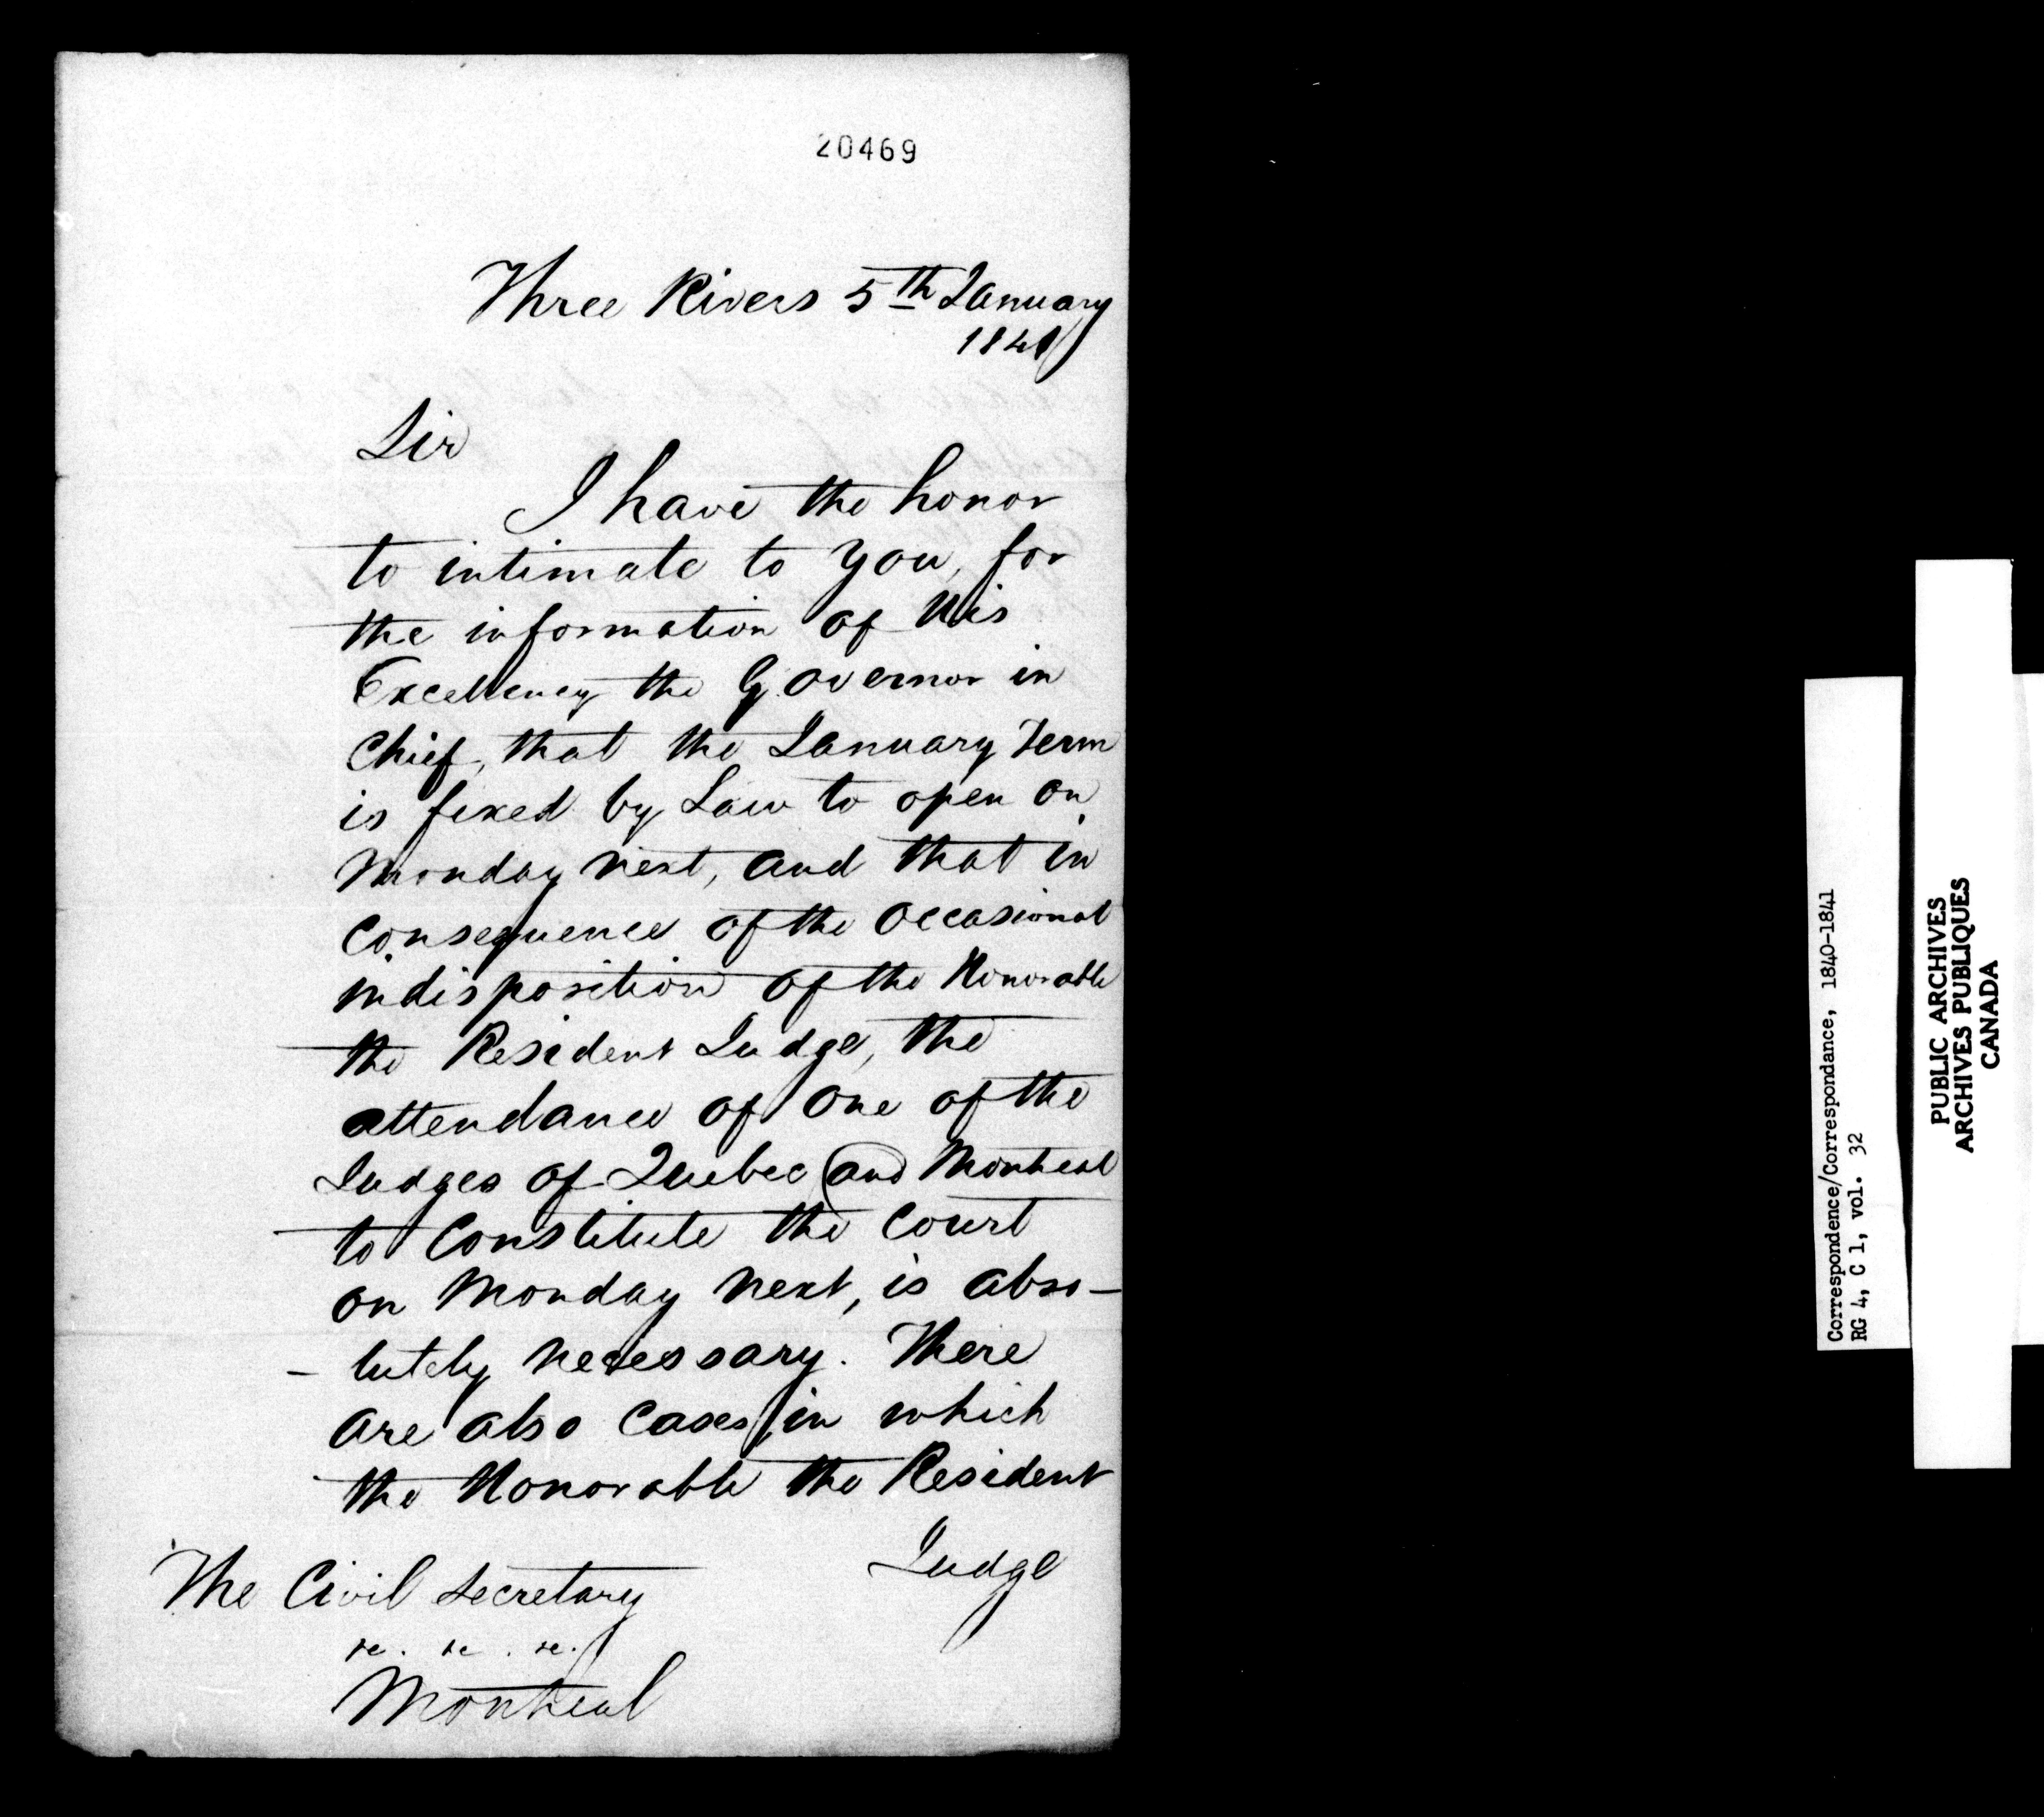 20469
Three Rivers 5th January
1841
Sir
I have the honor
to intimate to you, for
the information of His
Excellency the Governor in
Chief, that the January Term
is fixed by Law to open on
Monday next, and that in
Consequence of the occasional
indisposition of the Honorable
the Resident Judge, the
attendance of one of the
Judges of Quebec and Montreal
to Constitute the Court
on Monday next, is abso-
-lutely necessary. There
are also Cases, in which
the Honorable the Resident
Judge
The Civil Secretary
&c. &c. &c.
Montreal
Correspondence/Correspondance, 1840-1841
RG 4, C 1, vol. 32
PUBLIC ARCHIVES
ARCHIVES PUBLIQUES
CANADA